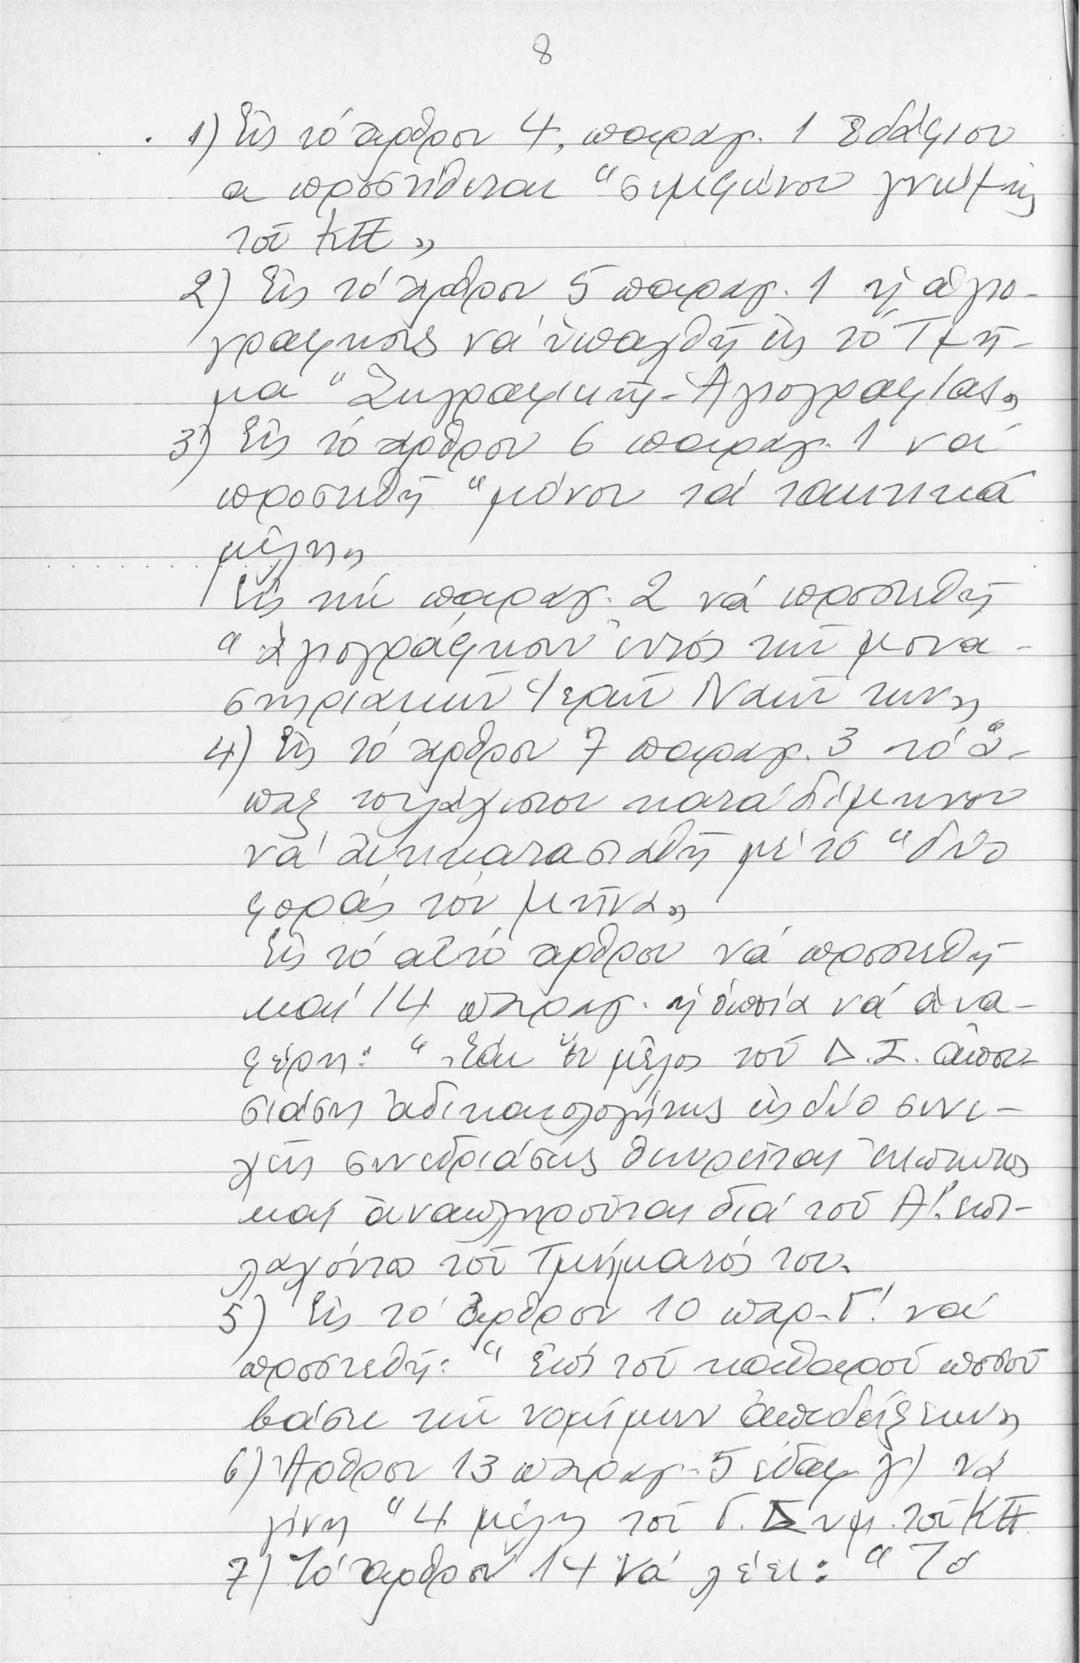 8
1) Εἰς τό ἄρθρον 4, παραγ. 1 ἐδάφιον
α προστίθεται "συμφώνου γνώμης
τοῦ ΚΠ"
2) Εἰς τό ἄρθρον 5 παραγ. 1 ἡ ἁγιο-
γράφησις νά ὑπαχθῆ εἰς τό Τμῆ-
μα "Ζωγραφικῆς-Ἁγιογραφίας"
3) Εἰς τό ἄρθρον 6 παραγ. 1 νά
προστεθῆ "μόνον τά τακτικά
μέλη"
Εἰς τήν παραγ. 2 νά προστεθῆ
"ἁγιογράφησιν ἐντός τῶν μονα-
στηριακῶν Ἱερῶν Ναῶν των"
4) Εἰς τό ἄρθρον 7 παραγ. 3 τό "ἅ-
παξ τουλάχιστον κατά δίμηνον
νά ἀντικατασταθῆ μέ τό "δύο
φοράς τόν μῆνα"
Εἰς τό αὐτό ἄρθρον νά προστεθῆ
καί 14 παραγ. ἡ ὁποία νά ἀνα-
φέρη: "Ἐάν ἕν μέλος τοῦ Δ.Σ. ἀπου-
σιάση ἀδικαιολογήτως εἰς δύο συνε-
χεῖς συνεδριάσεις θεωρεῖται ἔκπτωτος
καί ἀναπληροῦται διά τοῦ Α! ἐπι-
λαχόντος τοῦ Τμήματός του.
5) Εἰς τό ἄρθρον 10 παρ. Γ! νά
προστεθῆ: "Ἐπί τοῦ καθαροῦ ποσοῦ
βάσει τῶν νομίμων ἀποδείξεων"
6) Ἄρθρον 13 παραγ. 5 ἐδαφ γ) νά
γίνη "4 μέλη τοῦ Γ. Συμ. τοῦ ΚΠ
7) Τό ἄρθρον 14 νά λέει: "Τό